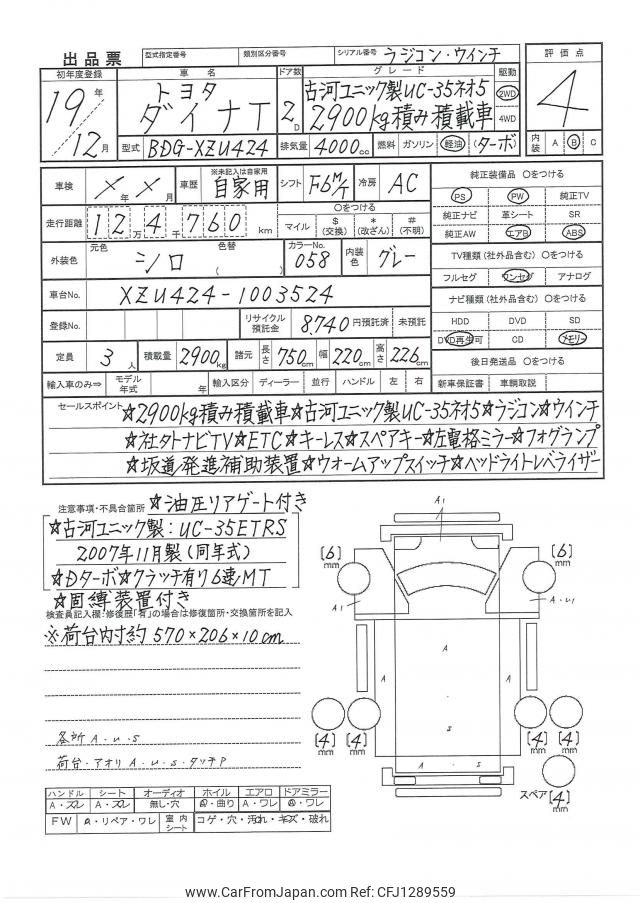 出品票 型式指定番号 類別区分番号 シリアル番号 ラジコン・ウインチ
初年度登録 車名 ドア数 グレード 駆動 評価点
19年 トヨタ 2D 古河ユニック製UC-35ネオ5 2WD 4
12月 ダイナT 2900kg積み積載車 4WD
型式 BDG-XZU424 排気量 4000cc 燃料 ガソリン 軽油 (ターボ) 内装 A B C
車検 メ年メ月 車歴 ※未記入は自家用 自家用 シフト F6M/T 冷房 AC
純正装備品 〇をつける
PS PW 純正TV
走行距離 12万4千760km 〇をつける
マイル $(交換) *(改ざん) #(不明)
純正ナビ 革シート SR
純正AW エアB ABS
外装色 元色 シロ 色替 ( ) カラーNo. 058 内装色 グレー
TV種類(社外品含む) 〇をつける
フルセグ ワンセグ アナログ
車台No. XZU424-1003524
ナビ種類(社外品含む) 〇をつける
登録No. リサイクル預託金 8,740円預託済 未預託
HDD DVD SD
DVD再生可 CD メモリー
定員 3人 積載量 2900kg 諸元 長さ 750cm 幅 220cm 高さ 226cm
後日発送品 〇をつける
輸入車のみ⇒ モデル年式 年 輸入区分 ディーラー 並行 ハンドル 左 右 新車保証書 車輌取説
セールスポイント ☆2900kg積み積載車☆古河ユニック製UC-35ネオ5☆ラジコン☆ウインチ
☆社外ナビTV☆ETC☆キーレス☆スペアキー☆左電格ミラー☆フォグランプ
☆坂道発進補助装置☆ウォームアップスイッチ☆ヘッドライトレベライザー
注意事項・不具合箇所 ☆油圧リアゲート付き
☆古河ユニック製:UC-35ETRS
2007年11月製(同年式)
☆Dターボ☆クラッチ有り6速MT
☆固縛装置付き
検査員記入欄:修復歴「有」の場合は修復箇所・交換箇所を記入
※荷台内寸約570×206×10cm
各所A.u.s
荷台・アオリ A.u.s.タッチP
A1
[6]mm [6]mm
A1 A.u1
A
A A
s
[4]mm [4]mm [4]mm [4]mm
A . s
スペア[4]mm
ハンドル シート オーディオ ホイル エアロ ドアミラー
A・スレ A・スレ 無し・穴 A・曲り A・ワレ A・ワレ
FW A・リペア・ワレ 室内シート コゲ・穴・汚れ・キズ・破れ
www.CarFromJapan.com Ref: CFJ1289559